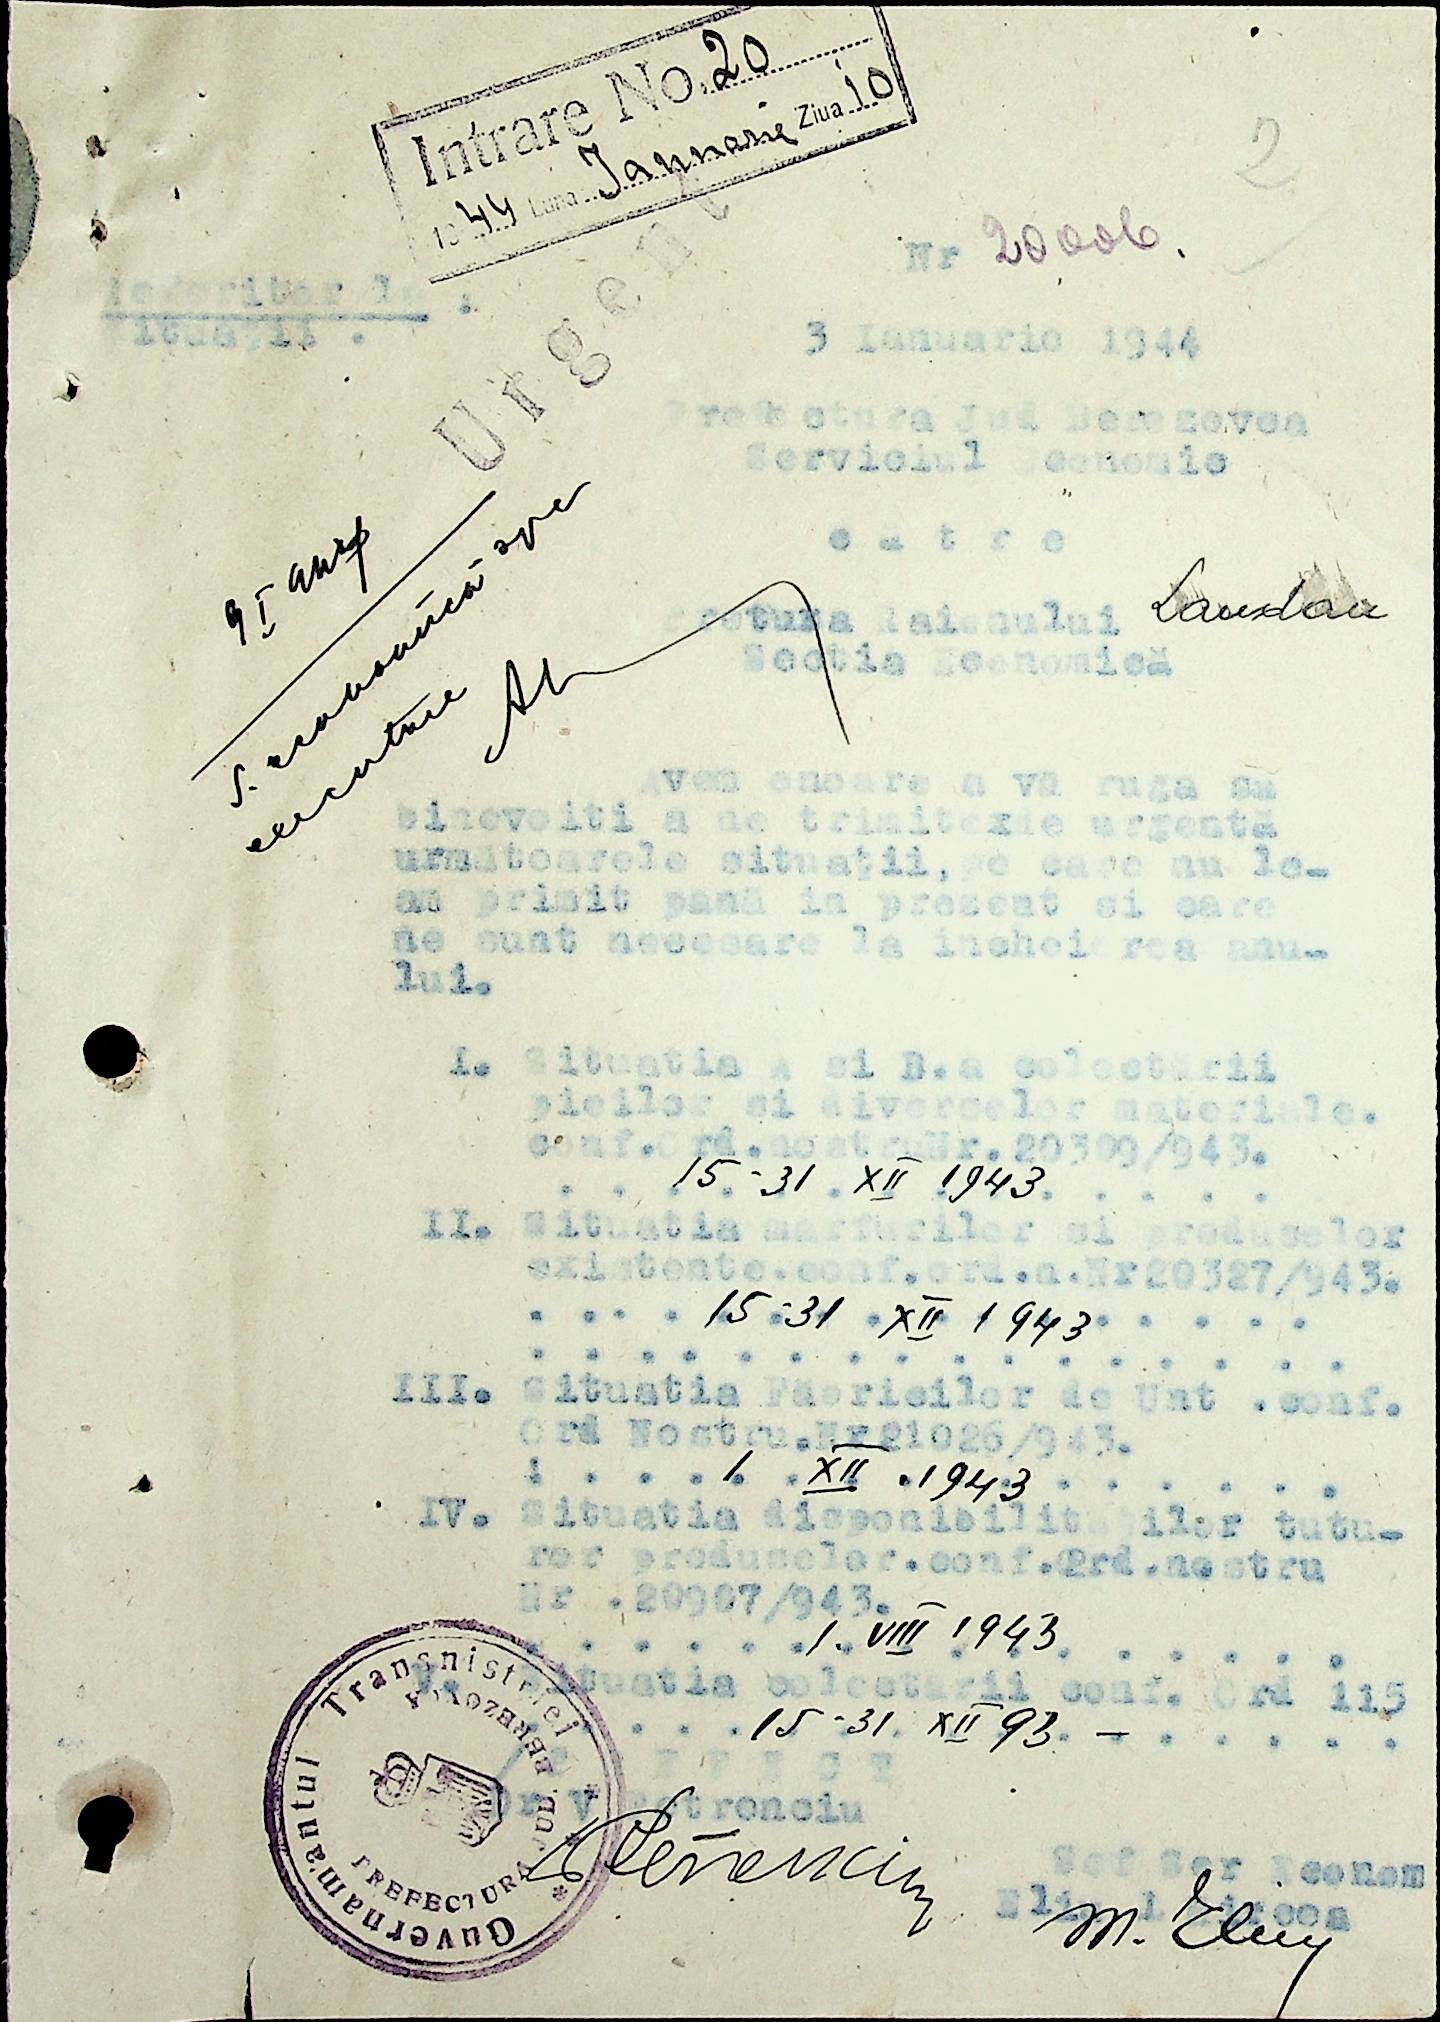 Intrare No. 20
1944 Luna Januarie Ziua 10
2
Urgent
Nr 20006.
Referitor la :
Situații .
3 Ianuarie 1944
Prefectura Jud Berezovca
Serviciul Economic
catre
Pretura Raionului Landau
Sectia Economică
9 I
S. economică spre
executare
Avem onoare a vă ruga să
binevoiti a ne trimite urgentă
următoarele situații, pe care nu le-
am primit pană in prezent si care
ne sunt necesare la incheierea anu-
lui.
I. Situatia A si B.a colectarii
pieilor si diverselor materiale.
conf.Ord.nostruNr.20309/943.
15-31 XII 1943.
II. Situatia marfurilor si produselor
existente.conf.ord.n.Nr20327/943.
15-31 XII 1943
III. Situatia Făbricilor de Unt .conf.
Ord Nostru.Nr21026/943.
1 XII .1943
IV. Situatia disponibilităților tutu-
ror produselor.conf.Ord.nostru
Nr .20987/943.
1. VIII 1943
V. Situatia colectarii conf. Ord 115
15-31 XII 93. —
PREFECT
Dr V Petrenciu
Guvernamantul Transnistriei
PREFECTURA JUD. BEREZOVCA
Sef Ser Econom
Mircea
M.